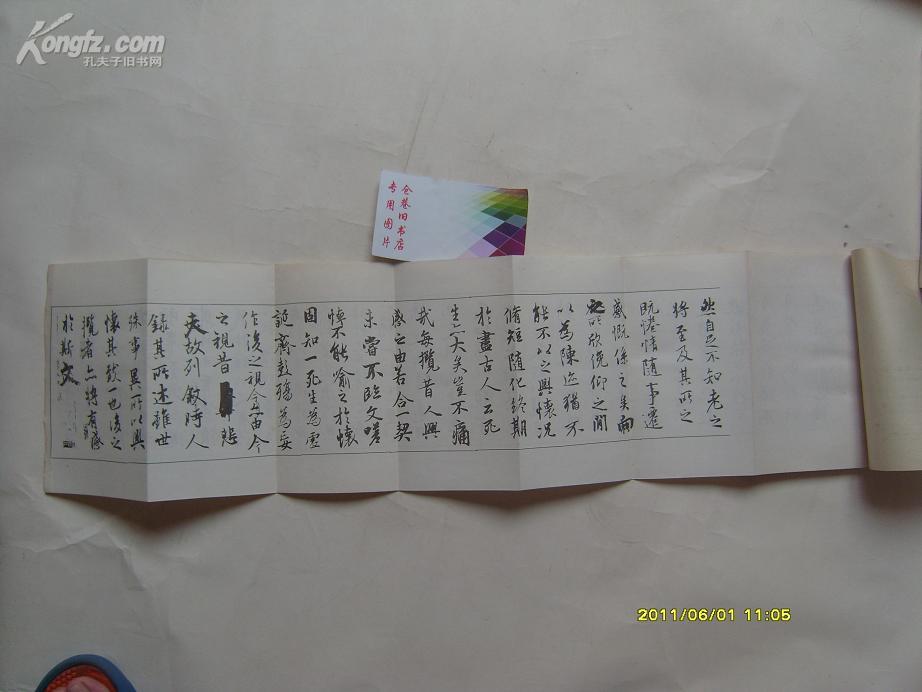 Kongfz.com
孔夫子旧书网
仓巷旧书店
专用图片
然自足不知老之
將至及其所之
既惓情隨事遷
感慨係之矣向
之所欣俛仰之閒
以為陳迹猶不
能不以之興懷況
脩短隨化終期
於盡古人云死
生亦大矣豈不痛
哉每攬昔人興
感之由若合一契
未嘗不臨文嗟
悼不能喻之於懷
固知一死生為虛
誕齊彭殤為妄
作後之視今亦由今
之視昔悲
夫故列敘時人
錄其所述雖世
殊事異所以興
懷其致一也後之
攬者亦將有感
於斯文
2011/06/01 11:05